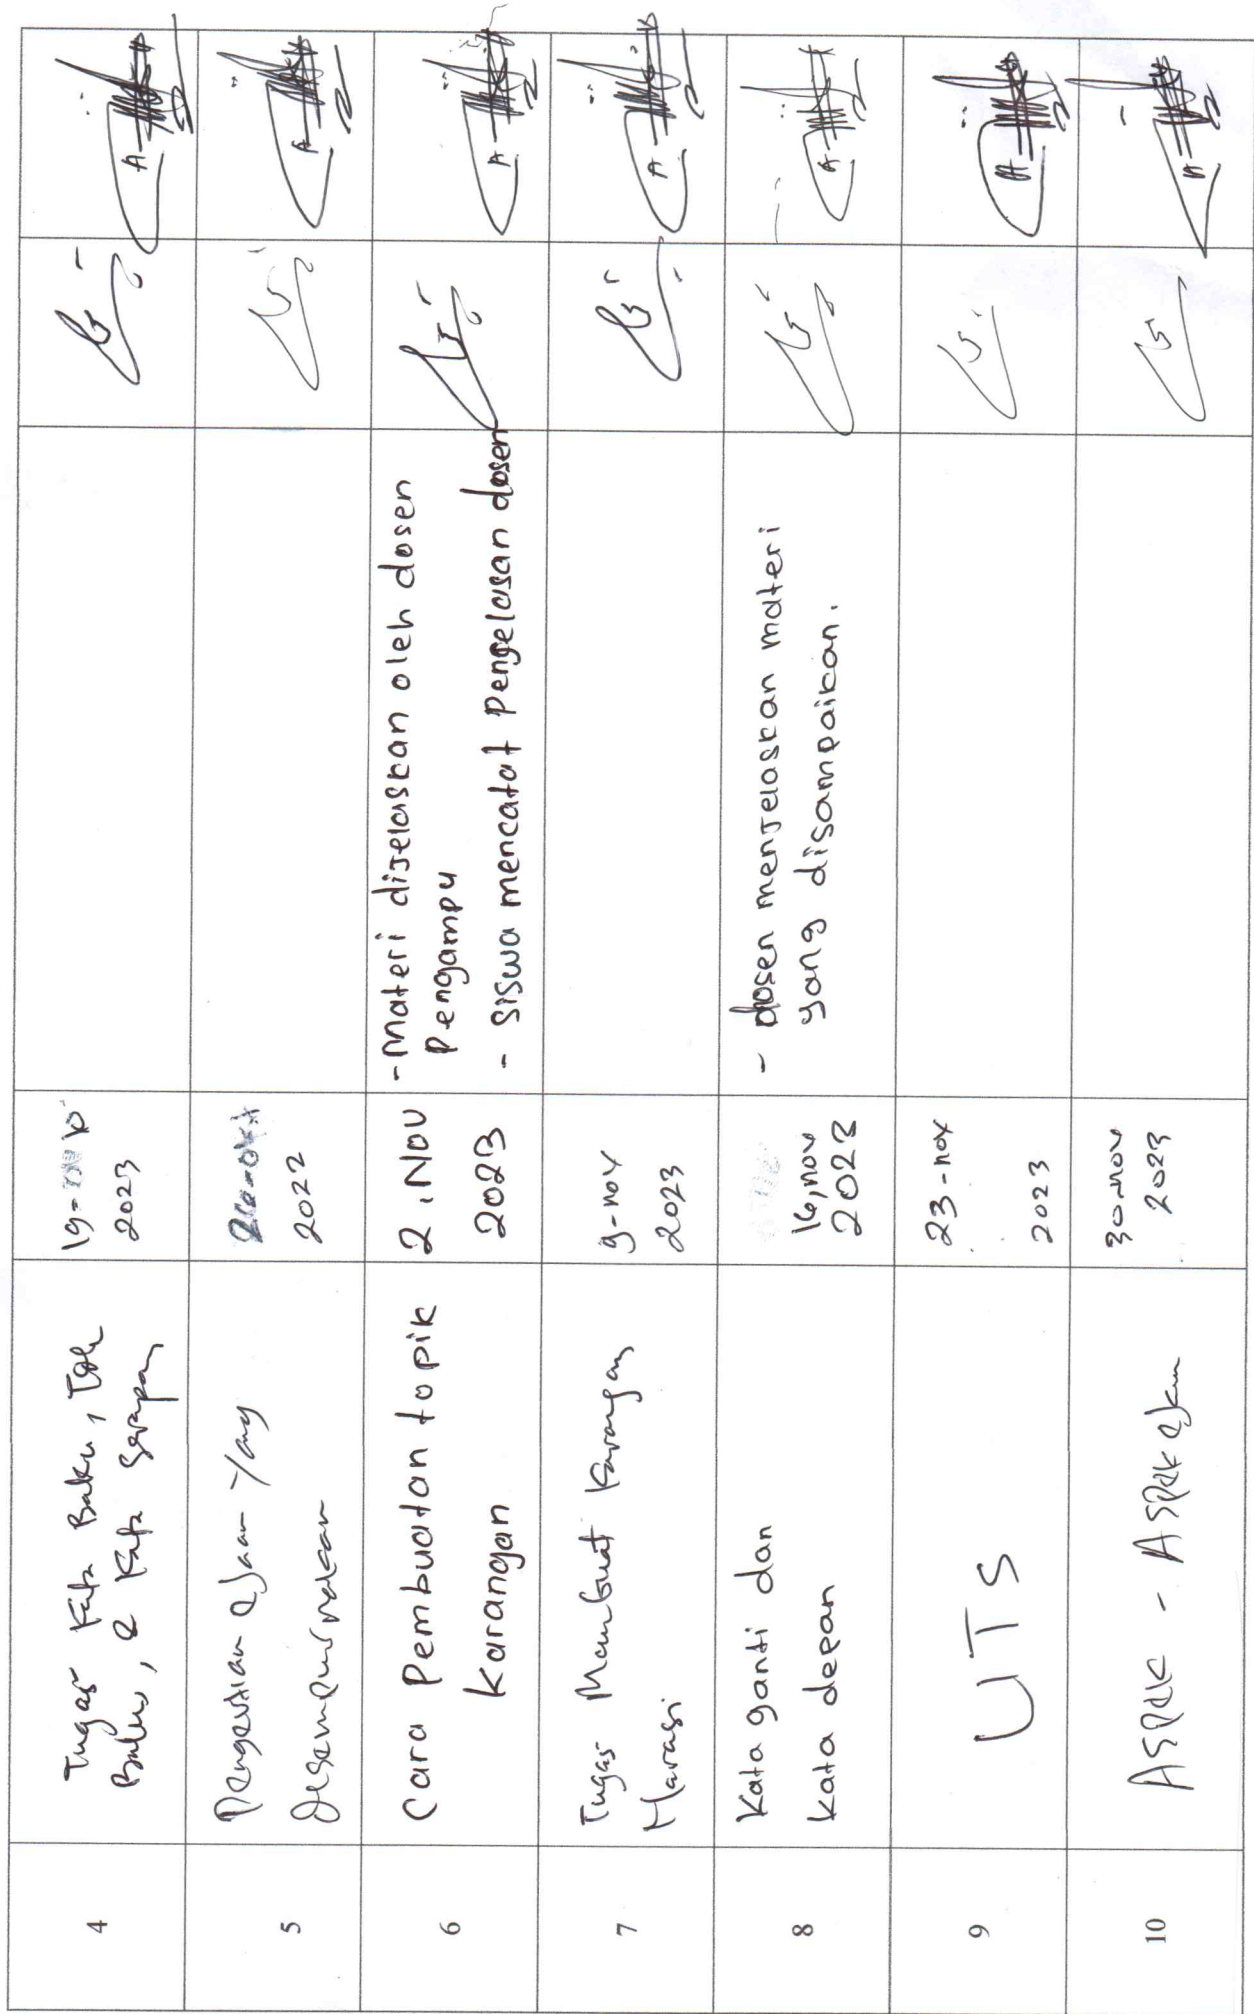 4
Tugas Kata Baku, Tdk
Baku, & Kata Serapan
19-
2023
5
Pengertian Ejaan Yang
Disempurnakan
2022
6
Cara Pembuatan topik
Karangan
2, Nov
2023
-Materi dijelaskan oleh dosen
Pengampu
- Siswa mencatat Pengelasan dosen
7
Tugas Membuat Karangan
Narasi
9-nov
2023
8
Kata ganti dan
kata depan
16, nov
2023
- dosen menjelaskan materi
yang disampaikan.
9
UTS
23-nov
2023
10
30-nov
2023